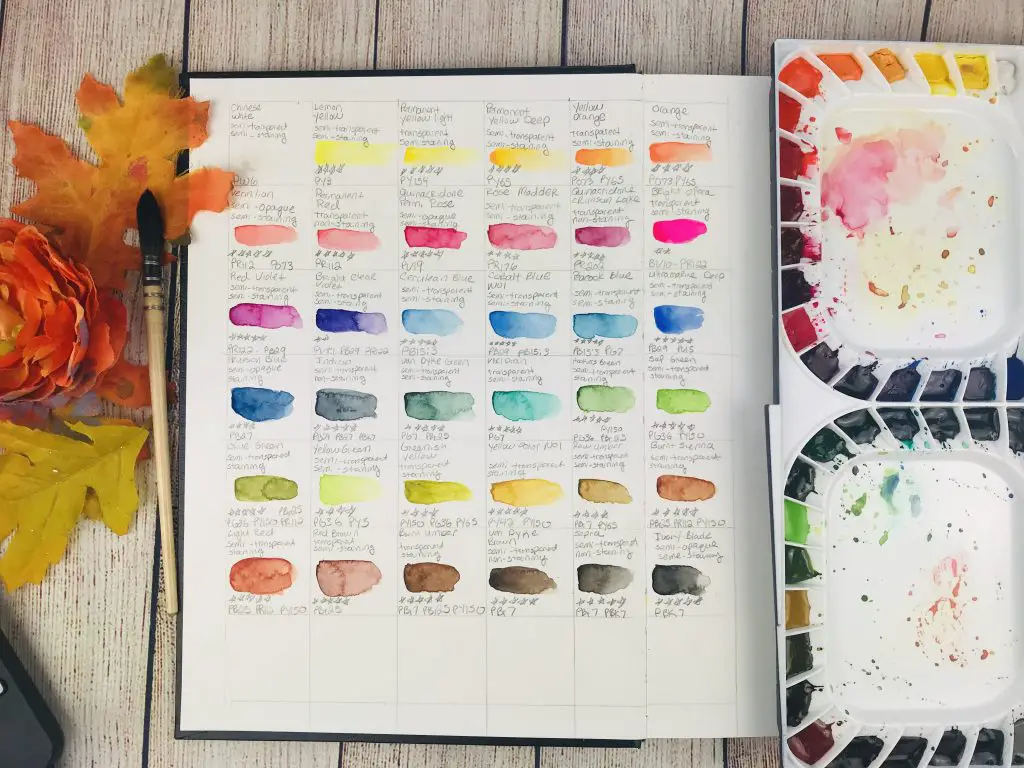 Chinese
white
semi-transparent
semi-staining
Lemon
Yellow
semi-transparent
semi-staining
Permanent
Yellow light
transparent
semi staining
Permanent
Yellow Deep
semi-transparent
semi-staining
Yellow
orange
transparent
semi-staining
Orange
semi-transparent
semi-staining
PW6
PY3
PY154
PY65
PO73 PY65
PO73 PY65
Vermilion
semi-opaque
semi-staining
Permanent
Red
transparent
non-staining
Quinacridone
Rose
semi-opaque
semi-staining
Rose Madder
semi-transparent
semi-staining
Quinacridone
Crimson Lake
transparent
non-staining
Bright Opera
transparent
semi-staining
PR112 PO73
PR112
PV19
PR176
PR202
PR122
Red Violet
semi-transparent
semi-staining
Bright Clear
Violet
semi-transparent
semi-staining
Cerulean Blue
semi-transparent
semi-staining
Cobalt Blue
No1
semi-transparent
semi-staining
Blue
semi-transparent
staining
Ultramarine Deep
semi-transparent
semi-staining
PR122
PB29 PR122
PB15:3
PB29 PB15:3
PB15:3 PG7
PB29
Blue
semi-opaque
staining
Indigo
semi-transparent
non-staining
Van Dyke Green
semi-transparent
staining
Viridian
transparent
semi-staining
Green
semi-transparent
staining
Sap Green
semi-transparent
staining
PB27
PB27
PG7 PBr25
PG7
PY150
PG36
PG36 PY150
Olive Green
semi-transparent
staining
Yellow Green
semi-transparent
semi-staining
Greenish
Yellow
transparent
staining
Yellow No1
semi-transparent
staining
Raw Umber
semi-transparent
semi-staining
Burnt Sienna
semi transparent
staining
PBr25
PG36 PY150 PR112
PG36 PY3
PY150 PG36 PY65
PY42 PY150
PBr7 PY65
PBr25 PR112 PY150
Light Red
semi-transparent
staining
Red Brown
transparent
semi-staining
Burnt Umber
transparent
staining
Van Dyke
Brown
semi-transparent
non-staining
Sepia
semi-transparent
non-staining
Ivory Black
semi-opaque
semi-staining
PBr25 PR112 PY150
PBr25
PBr7 PBr25 PY150
PBr7
PBr7 PBk7
PBk7